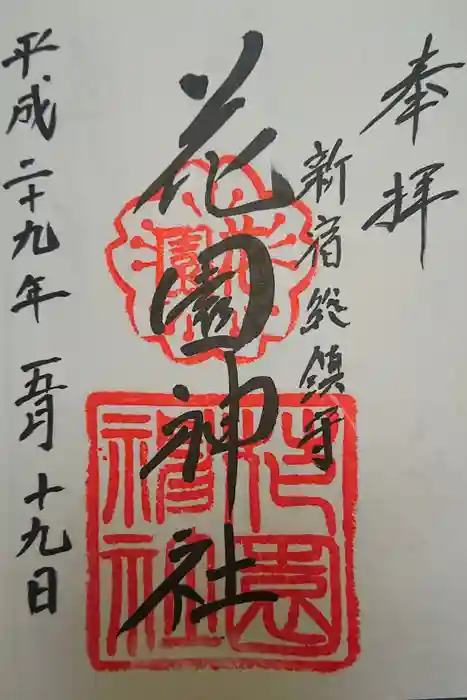 奉拝
新宿総鎮守
花園神社
平成二十九年五月十九日
花園
花園神社